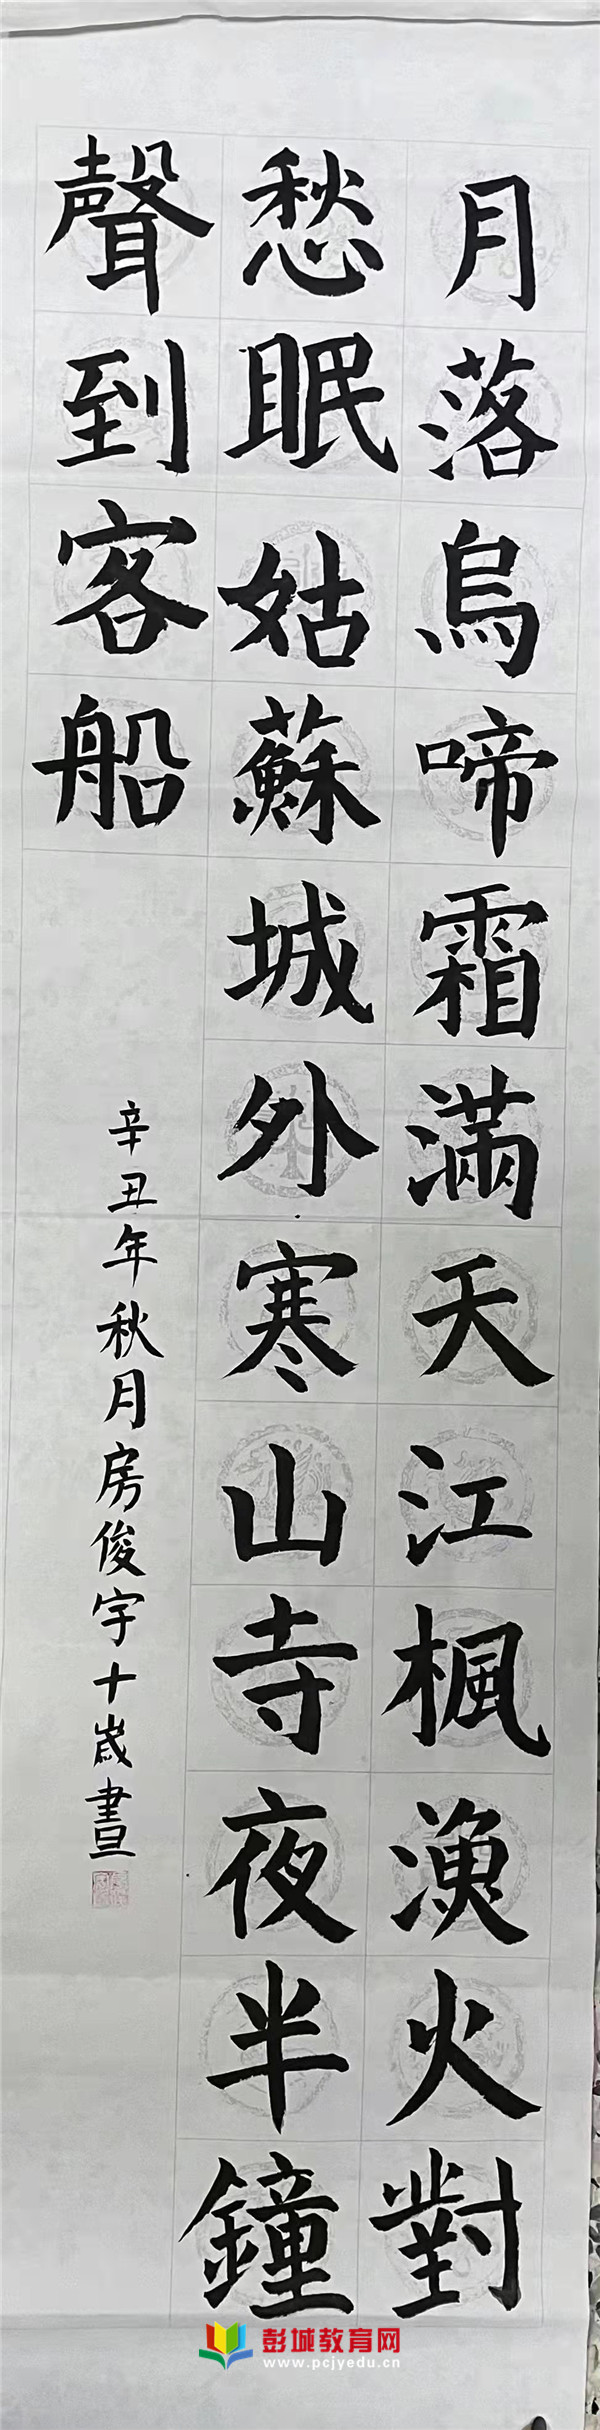 月落烏啼霜滿天江楓漁火對
愁眠姑蘇城外寒山寺夜半鐘
聲到客船
辛丑年秋月房俊宇十歲書
彭城教育网
www.pcjyedu.cn